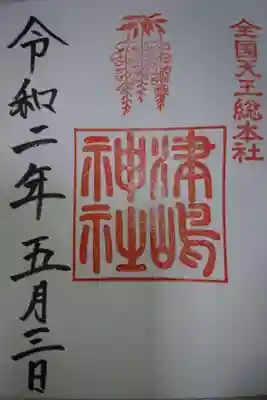 全国天王総本社
津嶋
神社
令和二年 五月三日